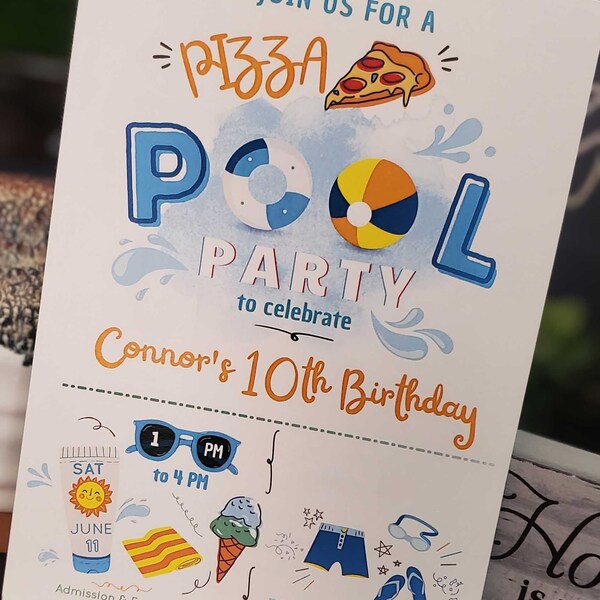 JOIN US FOR A
PIZZA
POOL
PARTY
to celebrate
Connor's 10th Birthday
1 PM
to 4 PM
SAT
JUNE
11
Admission &
is